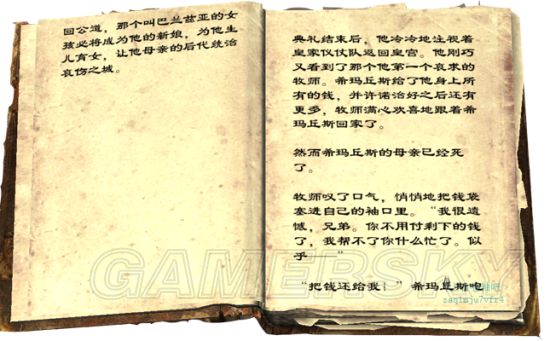 回公道，那个叫巴兰兹亚的女
孩必将成为他的新娘，为他生
儿育女，让他母亲的后代统治
哀伤之城。
典礼结束后，他冷冷地注视着
皇家仪仗队返回皇宫。他刚巧
又看到了那个他第一个哀求的
牧师。希玛丘斯给了他身上所
有的钱，并许诺治好之后还有
更多，牧师满心欢喜地跟着希
玛丘斯回家了。
然而希玛丘斯的母亲已经死
了。
牧师叹了口气，悄悄地把钱袋
塞进自己的袖口里。“我很遗
憾，兄弟。你不用付剩下的钱
了，我帮不了你什么忙了。似
乎——”
“把钱还给我！”希玛丘斯咆
GAMERSKY
zaq1mju7vfr4